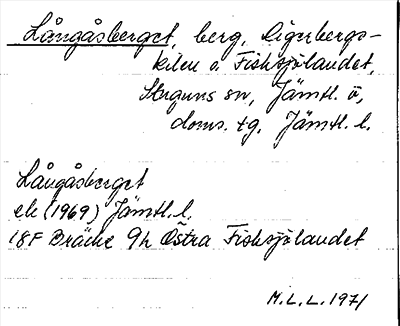 Långåsberget, berg, Digerbergs-
kilen o. Fisksjölandet,
Stuguns sn, Jämtl. ö,
doms. tg, Jämtl. l.
Långåsberget
ek (1969) Jämtl. l.
18F Bräcke 9h Östra Fisksjölandet
M.L.L. 1971